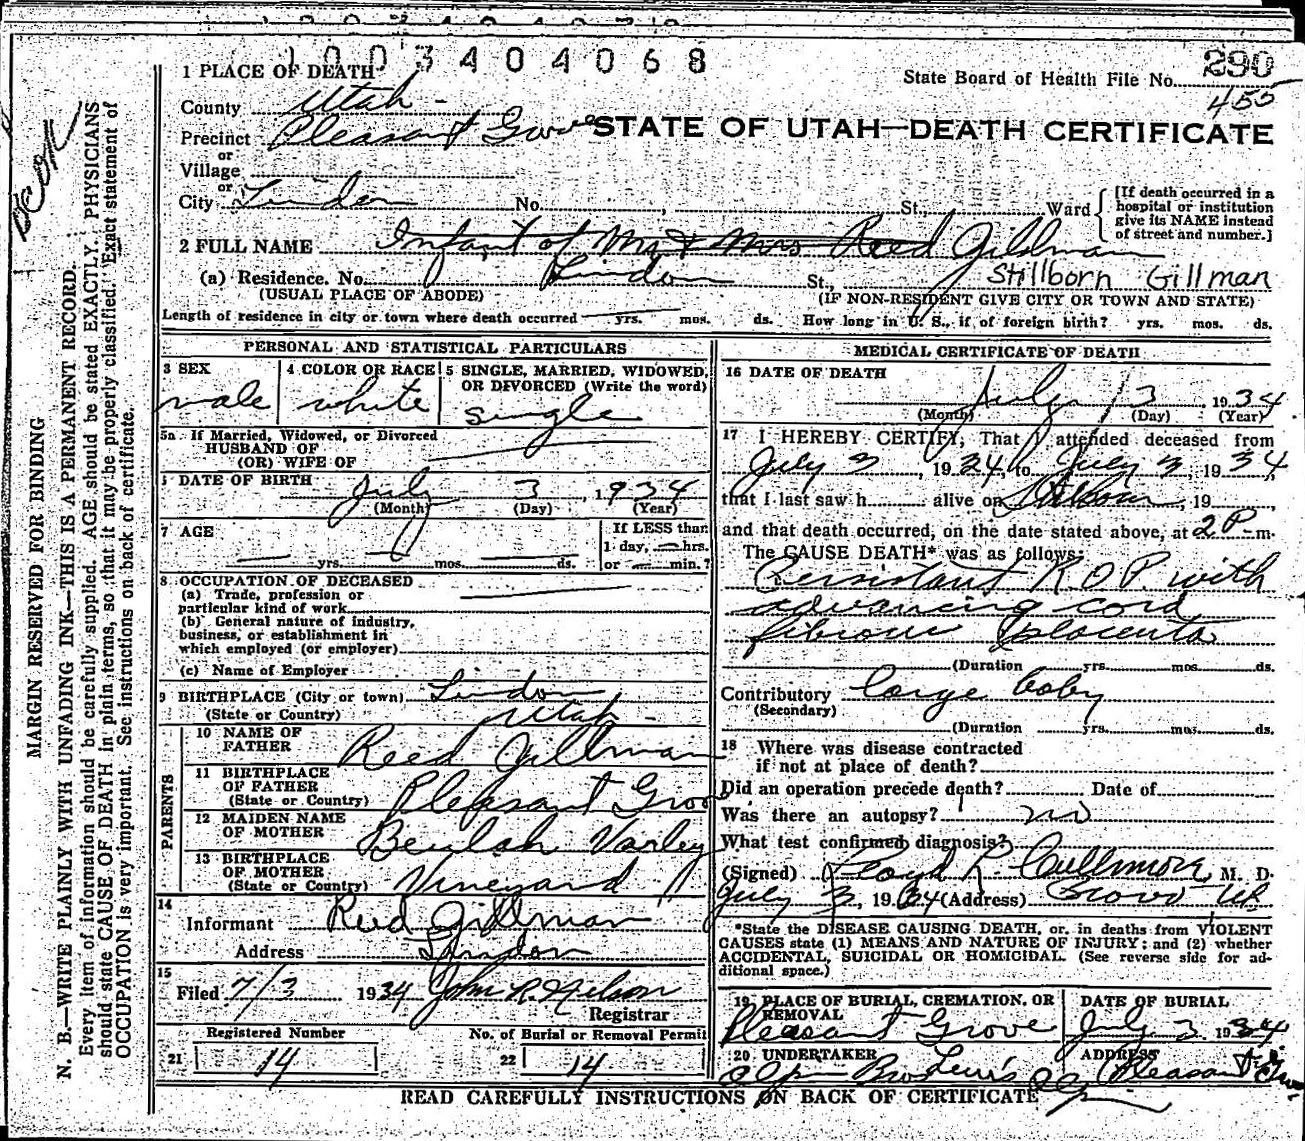 1003404068
1 PLACE OF DEATH
State Board of Health File No. 290
455
County Utah
STATE OF UTAH—DEATH CERTIFICATE
Precinct Pleasant Grove
or
Village
or
City Lindon No. , St., Ward
[If death occurred in a
hospital or institution
give its NAME instead
of street and number.]
2 FULL NAME Infant of Mr & Mrs Reed Gillman
Stillborn Gillman
(a) Residence. No. Lindon St.,
(USUAL PLACE OF ABODE) (IF NON-RESIDENT GIVE CITY OR TOWN AND STATE)
Length of residence in city or town where death occurred yrs. mos. ds. How long in U. S., if of foreign birth? yrs. mos. ds.
PERSONAL AND STATISTICAL PARTICULARS
3 SEX 4 COLOR OR RACE 5 SINGLE, MARRIED, WIDOWED,
OR DIVORCED (Write the word)
male white single
5a If Married, Widowed, or Divorced
HUSBAND OF
(OR) WIFE OF
DATE OF BIRTH July 3, 1934
(Month) (Day) (Year)
7 AGE
If LESS than
1 day, hrs.
yrs. mos. ds. or min.?
8 OCCUPATION OF DECEASED
(a) Trade, profession or
particular kind of work
(b) General nature of industry,
business, or establishment in
which employed (or employer)
(c) Name of Employer
9 BIRTHPLACE (City or town) Lindon
(State or Country) Utah
PARENTS
10 NAME OF
FATHER Reed Gillman
11 BIRTHPLACE
OF FATHER
(State or Country) Pleasant Grove
12 MAIDEN NAME
OF MOTHER Beulah Varley
13 BIRTHPLACE
OF MOTHER
(State or Country) Vineyard
14
Informant Reed Gillman
Address Lindon
15
Filed 7/3 1934 John R. Nelson
Registrar
Registered Number No. of Burial or Removal Permit
21 14 22 14
MEDICAL CERTIFICATE OF DEATH
16 DATE OF DEATH
July 3, 1934
(Month) (Day) (Year)
17 I HEREBY CERTIFY, That I attended deceased from
July 3, 1934, to July 3, 1934
that I last saw h alive on Stillborn, 19
and that death occurred, on the date stated above, at 2 P. m.
The CAUSE DEATH* was as follows:
Persistant R.O.P. with
advancing cord
fibrous placenta
(Duration yrs. mos. ds.
Contributory large baby
(Secondary)
(Duration yrs. mos. ds.
18 Where was disease contracted
if not at place of death?
Did an operation precede death? Date of
Was there an autopsy? no
What test confirmed diagnosis?
(Signed) Floyd R. Cullimore, M. D.
July 3, 1934 (Address) Provo Ut
*State the DISEASE CAUSING DEATH, or, in deaths from VIOLENT
CAUSES state (1) MEANS AND NATURE OF INJURY; and (2) whether
ACCIDENTAL, SUICIDAL OR HOMICIDAL. (See reverse side for ad-
ditional space.)
19 PLACE OF BURIAL, CREMATION, OR
REMOVAL
Pleasant Grove
DATE OF BURIAL
July 3 1934
20 UNDERTAKER
ADDRESS
Pleasant
READ CAREFULLY INSTRUCTIONS ON BACK OF CERTIFICATE
MARGIN RESERVED FOR BINDING
N. B.—WRITE PLAINLY WITH UNFADING INK—THIS IS A PERMANENT RECORD.
Every item of information should be carefully supplied. AGE should be stated EXACTLY. PHYSICIANS
should state CAUSE OF DEATH in plain terms, so that it may be properly classified. Exact statement of
OCCUPATION is very important. See instructions on back of certificate.